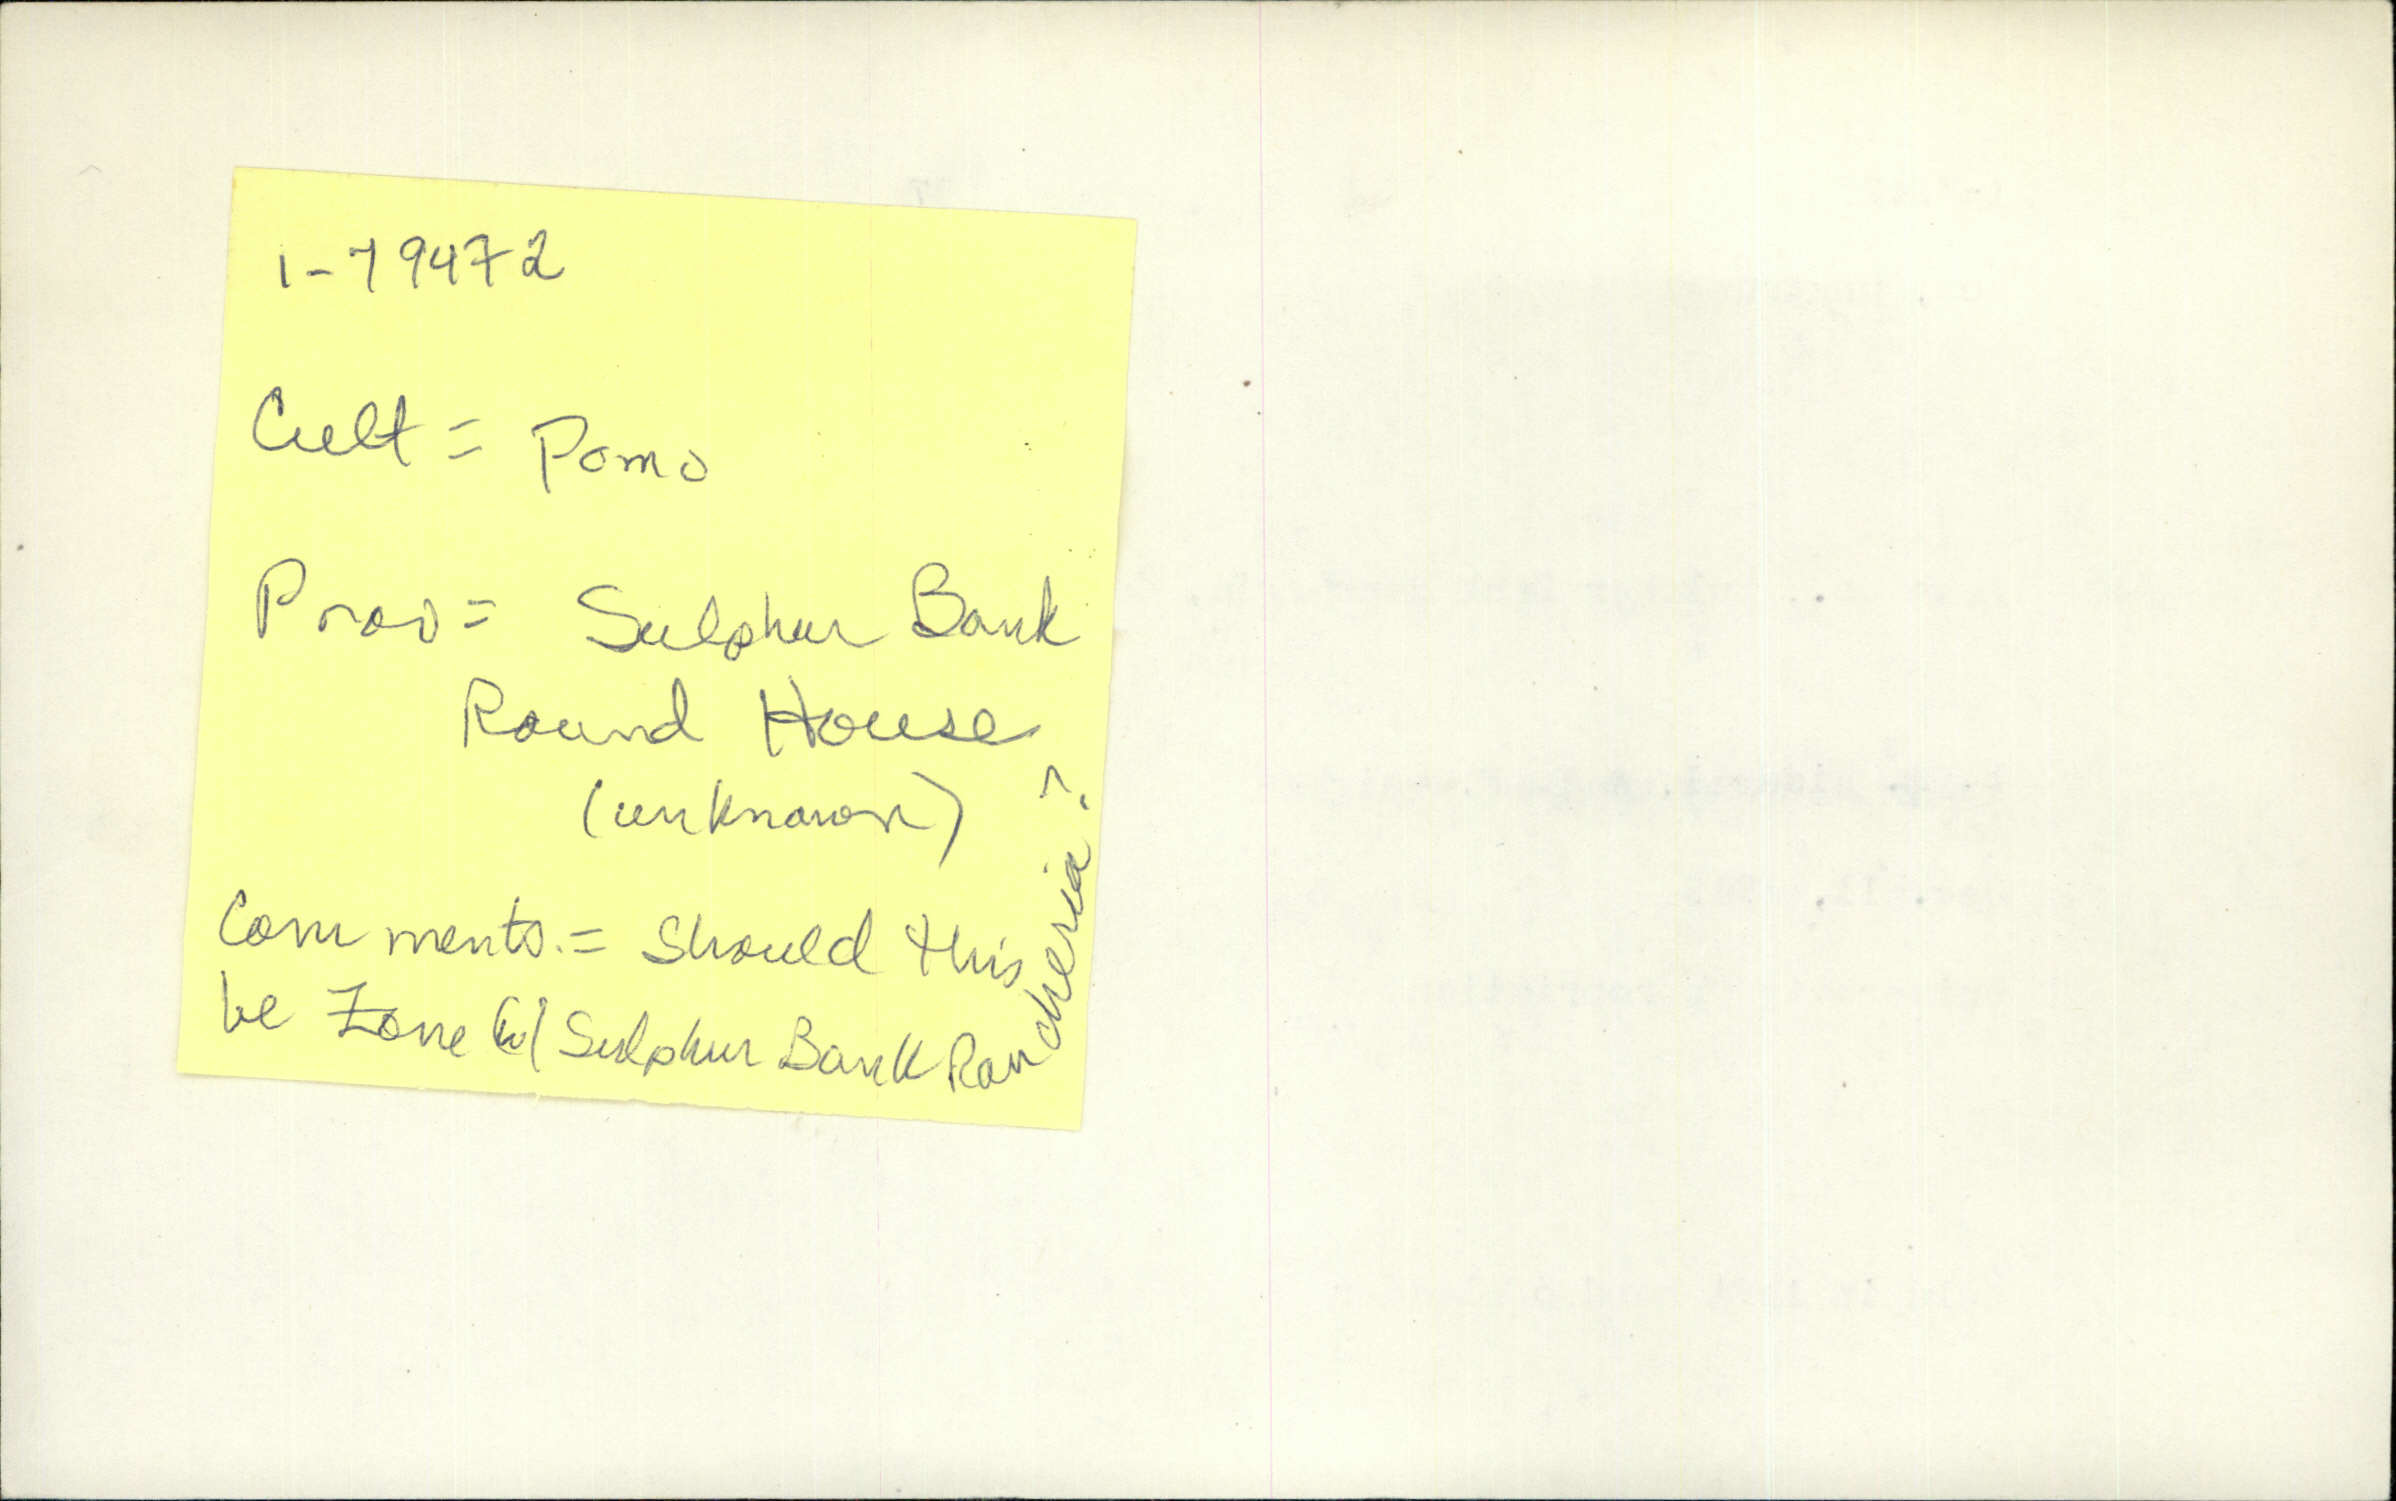 1-79472
Cult = Pomo
Prov = Sulphur Bank
Round House
(unknown)
Comments = Should this
be Zone w/ Sulphur Bank Rancheria?